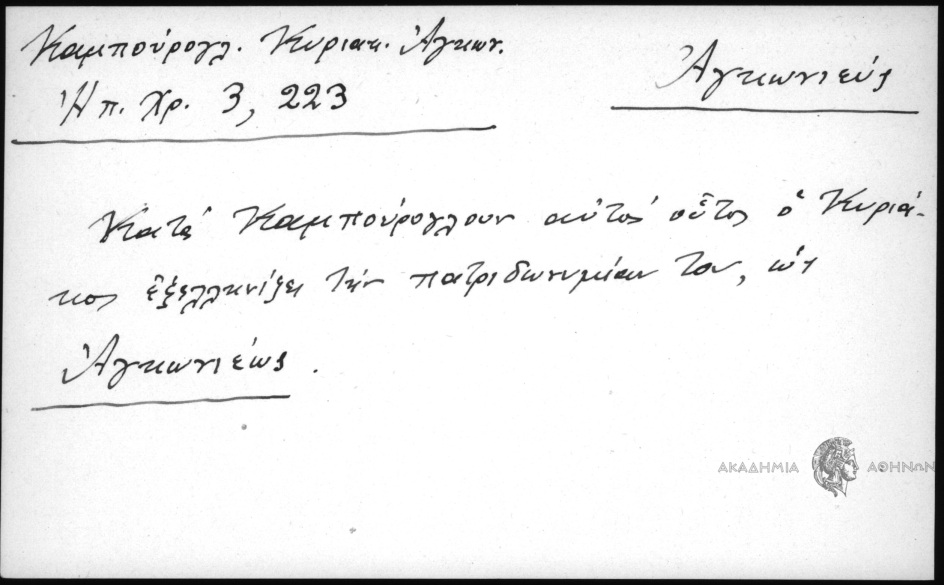 Καμπούρογλ. Κυριακ. Ἀγκων.
Ἀγκωνιεύς
Ἠπ. Χρ. 3, 223
Κατὰ Καμπούρογλουν αὐτὸς οὗτος ὁ Κυριά-
κος ἐξελληνίζει τὴν πατριδωνυμίαν του, ὡς
Ἀγκωνιέως.
ΑΚΑΔΗΜΙΑ ΑΘΗΝΩΝ